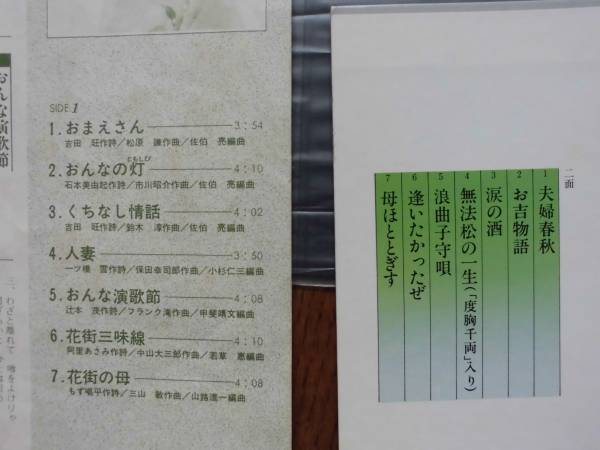 おんな演歌節
三、わざと離れて 噂をよけりゃ
SIDE 1
1. おまえさん 3:54
吉田 旺作詩/松原 謙作曲/佐伯 亮編曲
2. おんなの灯 ともしび 4:10
石本美由起作詩/市川昭介作曲/佐伯 亮編曲
3. くちなし情話 4:02
吉田 旺作詩/鈴木 淳作曲/佐伯 亮編曲
4. 人妻 3:50
一ツ橋 雪作詩/保田幸司郎作曲/小杉仁三編曲
5. おんな演歌節 4:08
辻本 茂作詩/フランク滝作曲/甲斐靖文編曲
6. 花街三味線 4:10
阿里あさみ作詩/中山大三郎作曲/若草 恵編曲
7. 花街の母 4:08
もず唱平作詩/三山 敏作曲/山路進一編曲
二面
1 夫婦春秋
2 お吉物語
3 涙の酒
4 無法松の一生(「度胸千両」入り)
5 浪曲子守唄
6 逢いたかったぜ
7 母ほととぎす